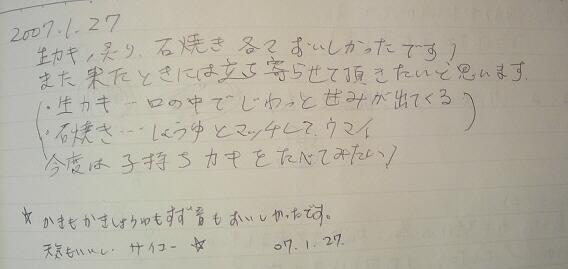 2007.1.27
生カキ、炙り、石焼き 各々おいしかったです!
また来たときには立ち寄らせて頂きたいと思います。
・生カキ…口の中でじわっと甘みが出てくる
・石焼き…しょうゆとマッチして、ウマイ
今度は子持ちカキをたべてみたい!
☆かきもかきしょうゆもすず音もおいしかったです。
天気もいいし サイコー☆ 07.1.27.